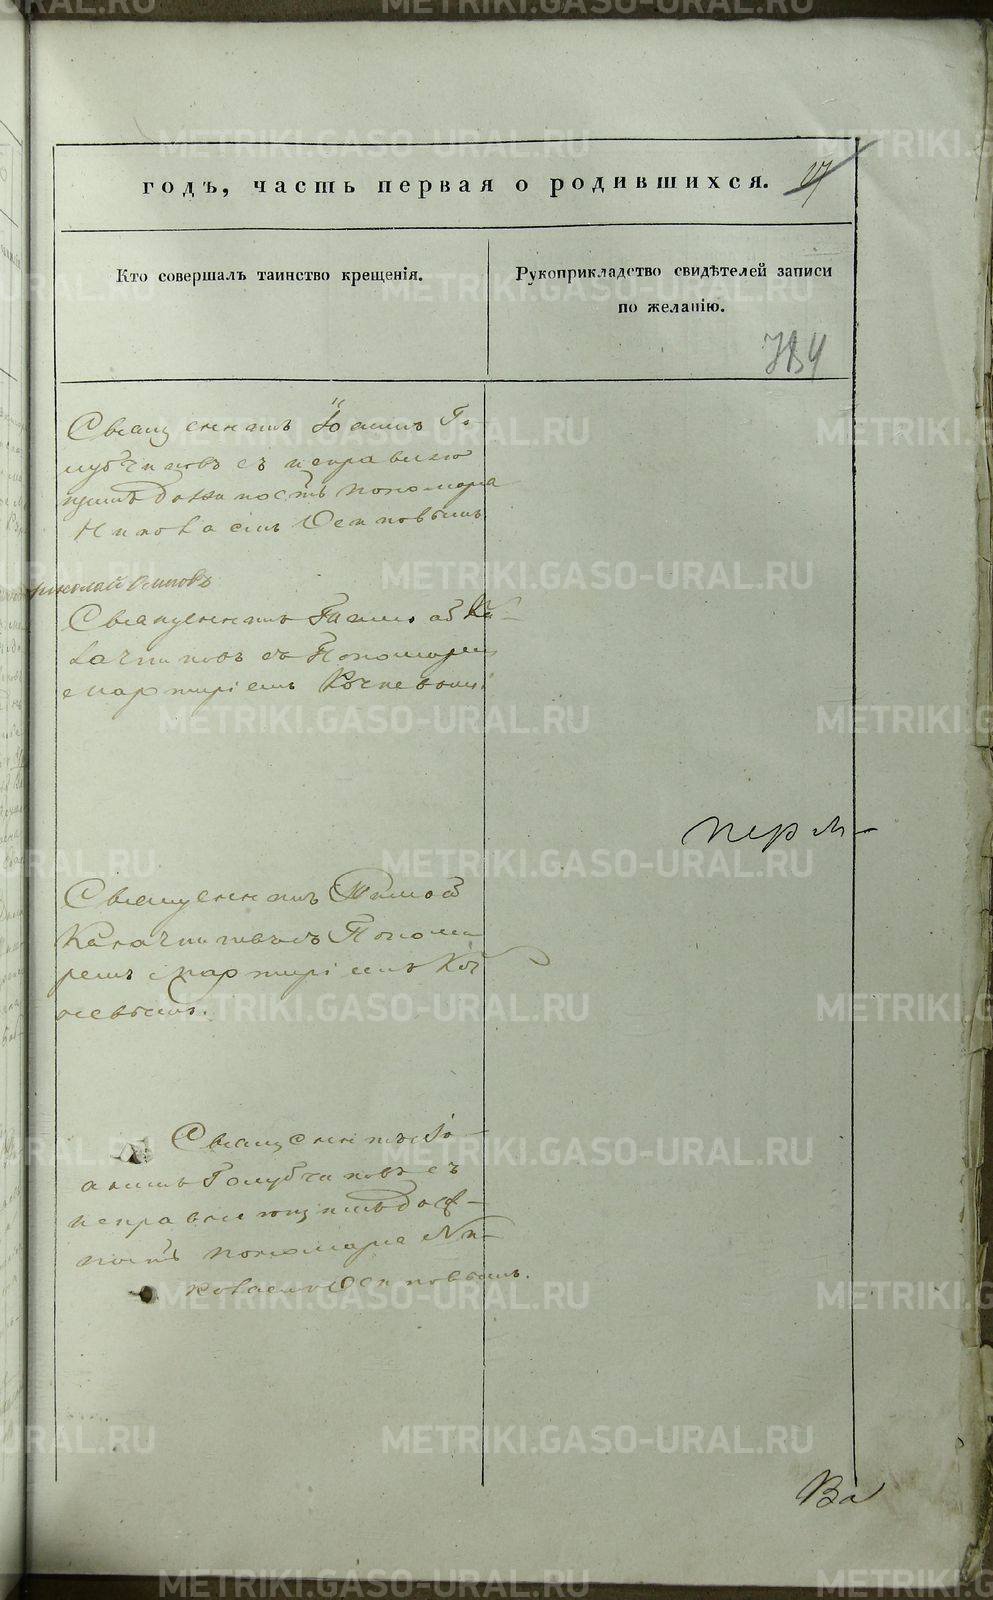 годъ, часть первая о родившихся.
17
Кто совершалъ таинство крещенія.
Рукоприкладство свидѣтелей записи
по желанію.
Священникъ Іоаннъ Го
лубчиковъ съ исправляю
щимъ должность пономаря
Николаемъ Осиповымъ
Николай Осиповъ
Священникъ Ка
лачниковъ съ Пономаремъ
Мартиріемъ
перм
Священникъ
Калачниковъ съ Понома
ремъ Мартиріемъ Коч
невымъ.
Священникъ Іо
аннъ Голубчиковъ съ
исправляющимъ долж
ность пономаря Ни
колаемъ Осиповымъ.
Ва
METRIKI.GASO-URAL.RU